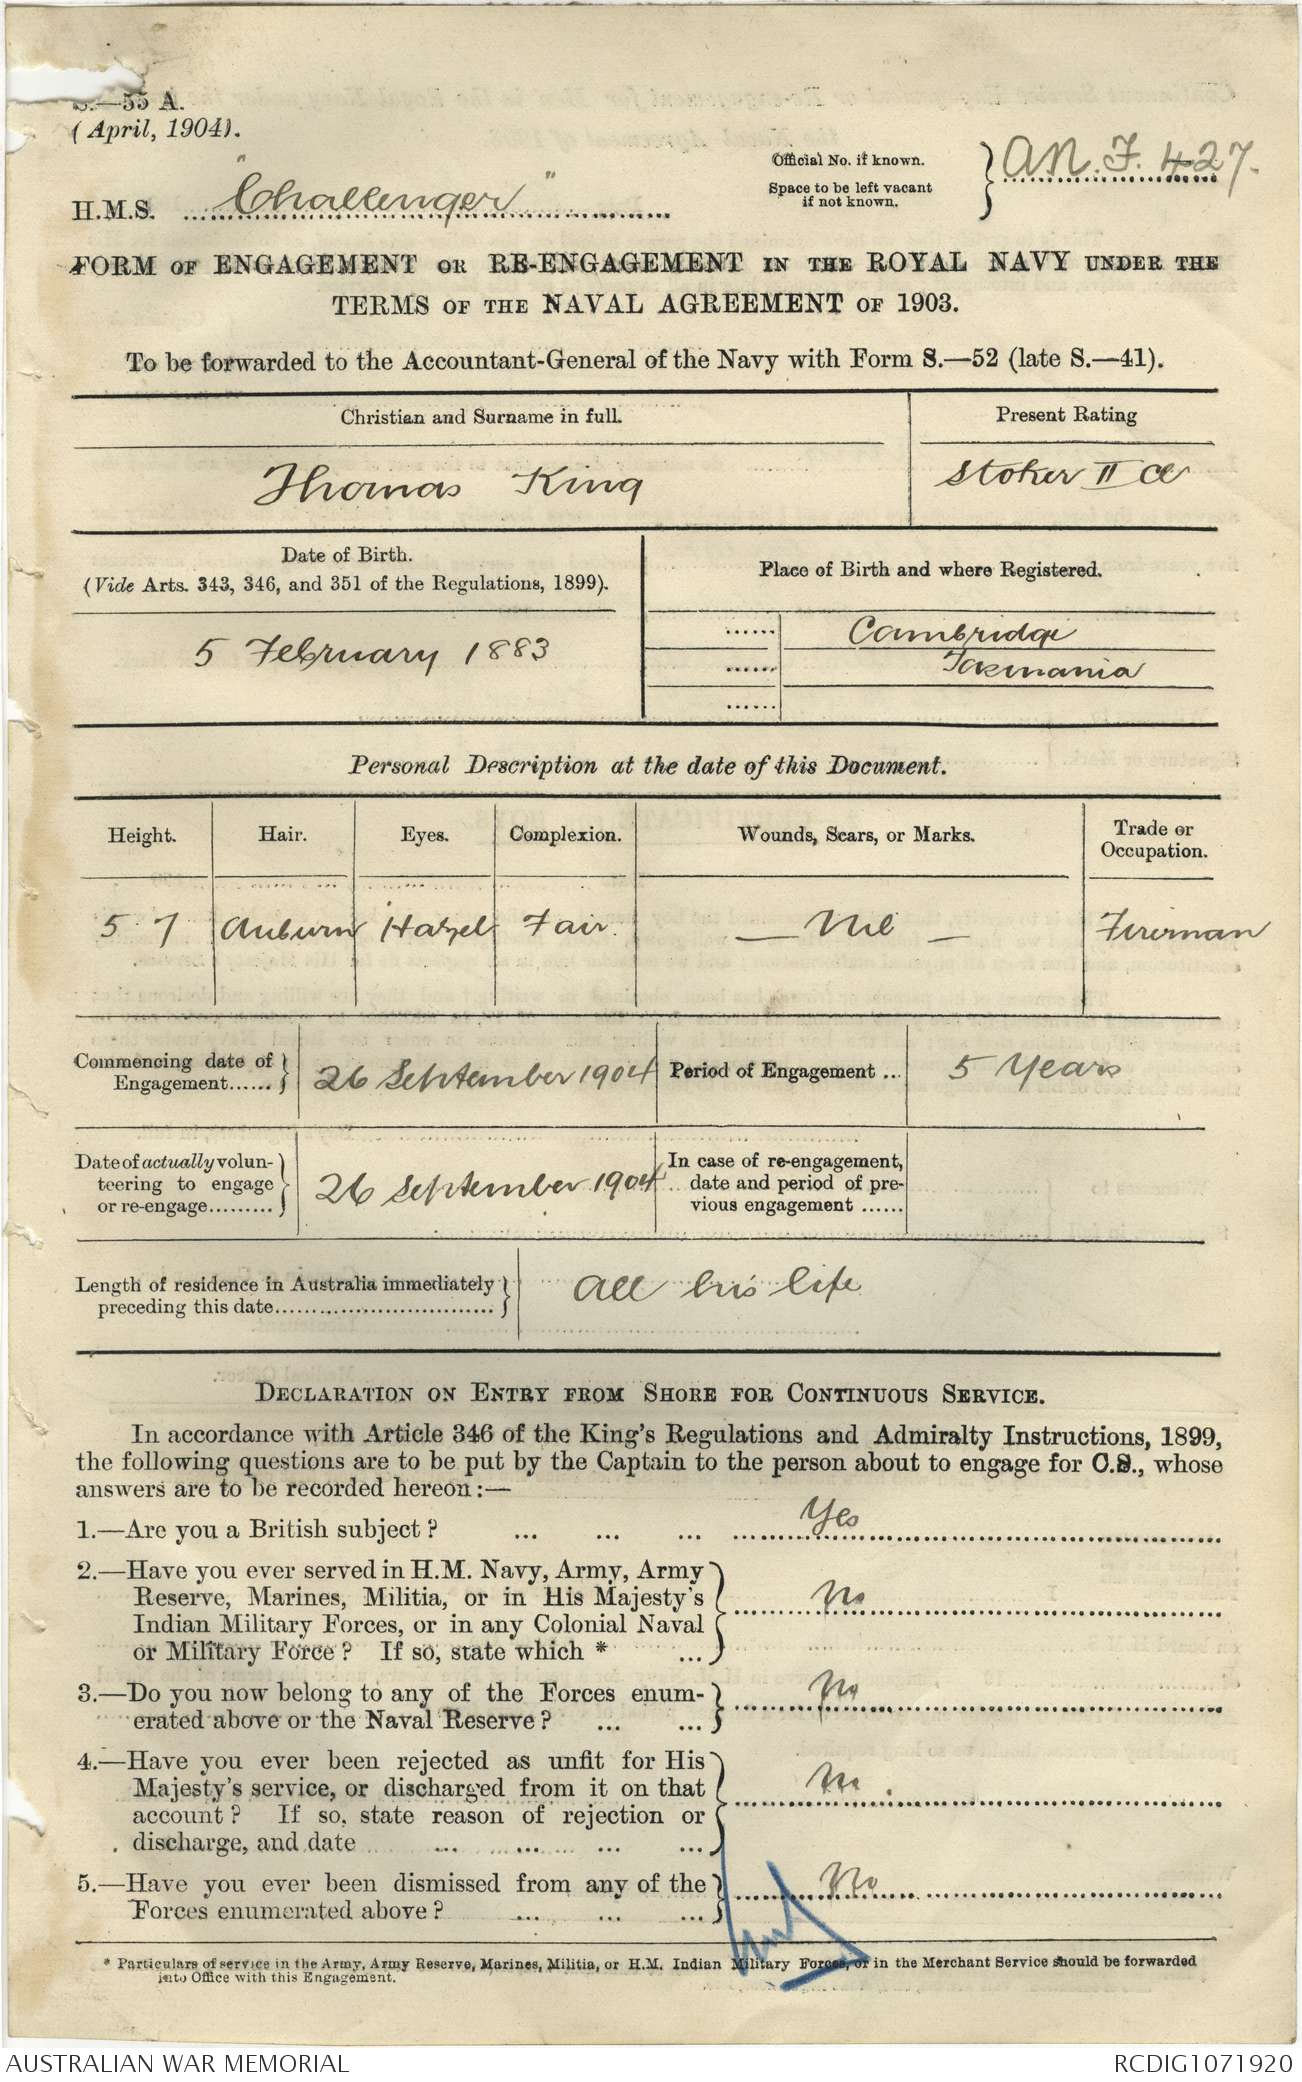 S.—55 A.
(April, 1904).
Official No. if known.
Space to be left vacant
if not known.
A.N.F. 427.
H.M.S. "Challenger"
FORM OF ENGAGEMENT OR RE-ENGAGEMENT IN THE ROYAL NAVY UNDER THE
TERMS OF THE NAVAL AGREEMENT OF 1903.
To be forwarded to the Accountant-General of the Navy with Form S.—52 (late S.—41).
Christian and Surname in full.
Present Rating
Thomas King
Stoker II Cl
Date of Birth.
(Vide Arts. 343, 346, and 351 of the Regulations, 1899).
Place of Birth and where Registered.
5 February 1883
Cambridge
Tasmania
Personal Description at the date of this Document.
Height. Hair. Eyes. Complexion. Wounds, Scars, or Marks. Trade or
Occupation.
5 7 Auburn Hazel Fair — Nil — Fireman
Commencing date of
Engagement...... 26 September 1904 Period of Engagement ... 5 Years
Date of actually volun-
teering to engage
or re-engage.........
26 September 1904
In case of re-engagement,
date and period of pre-
vious engagement ......
Length of residence in Australia immediately
preceding this date.................................
All his life
DECLARATION ON ENTRY FROM SHORE FOR CONTINUOUS SERVICE.
In accordance with Article 346 of the King's Regulations and Admiralty Instructions, 1899,
the following questions are to be put by the Captain to the person about to engage for C.S., whose
answers are to be recorded hereon:—
1.—Are you a British subject? ... ... ... Yes
2.—Have you ever served in H.M. Navy, Army, Army
Reserve, Marines, Militia, or in His Majesty's
Indian Military Forces, or in any Colonial Naval
or Military Force? If so, state which * ...
No
3.—Do you now belong to any of the Forces enum-
erated above or the Naval Reserve? ... ...
No
4.—Have you ever been rejected as unfit for His
Majesty's service, or discharged from it on that
account? If so, state reason of rejection or
discharge, and date ... ... ... ...
No.
5.—Have you ever been dismissed from any of the
Forces enumerated above? ... ... ...
No
* Particulars of service in the Army, Army Reserve, Marines, Militia, or H.M. Indian Military Forces, or in the Merchant Service should be forwarded
into Office with this Engagement.
AUSTRALIAN WAR MEMORIAL
RCDIG1071920